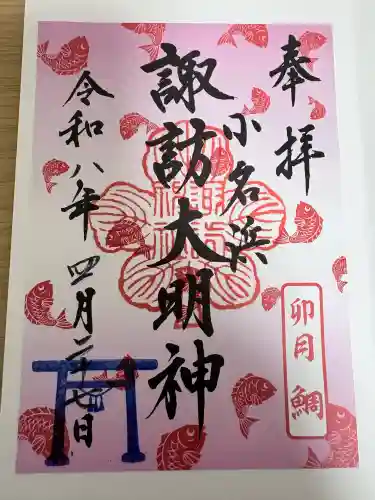 奉拝
小名浜
諏訪大明神
令和八年四月二十七日
卯月 鯛